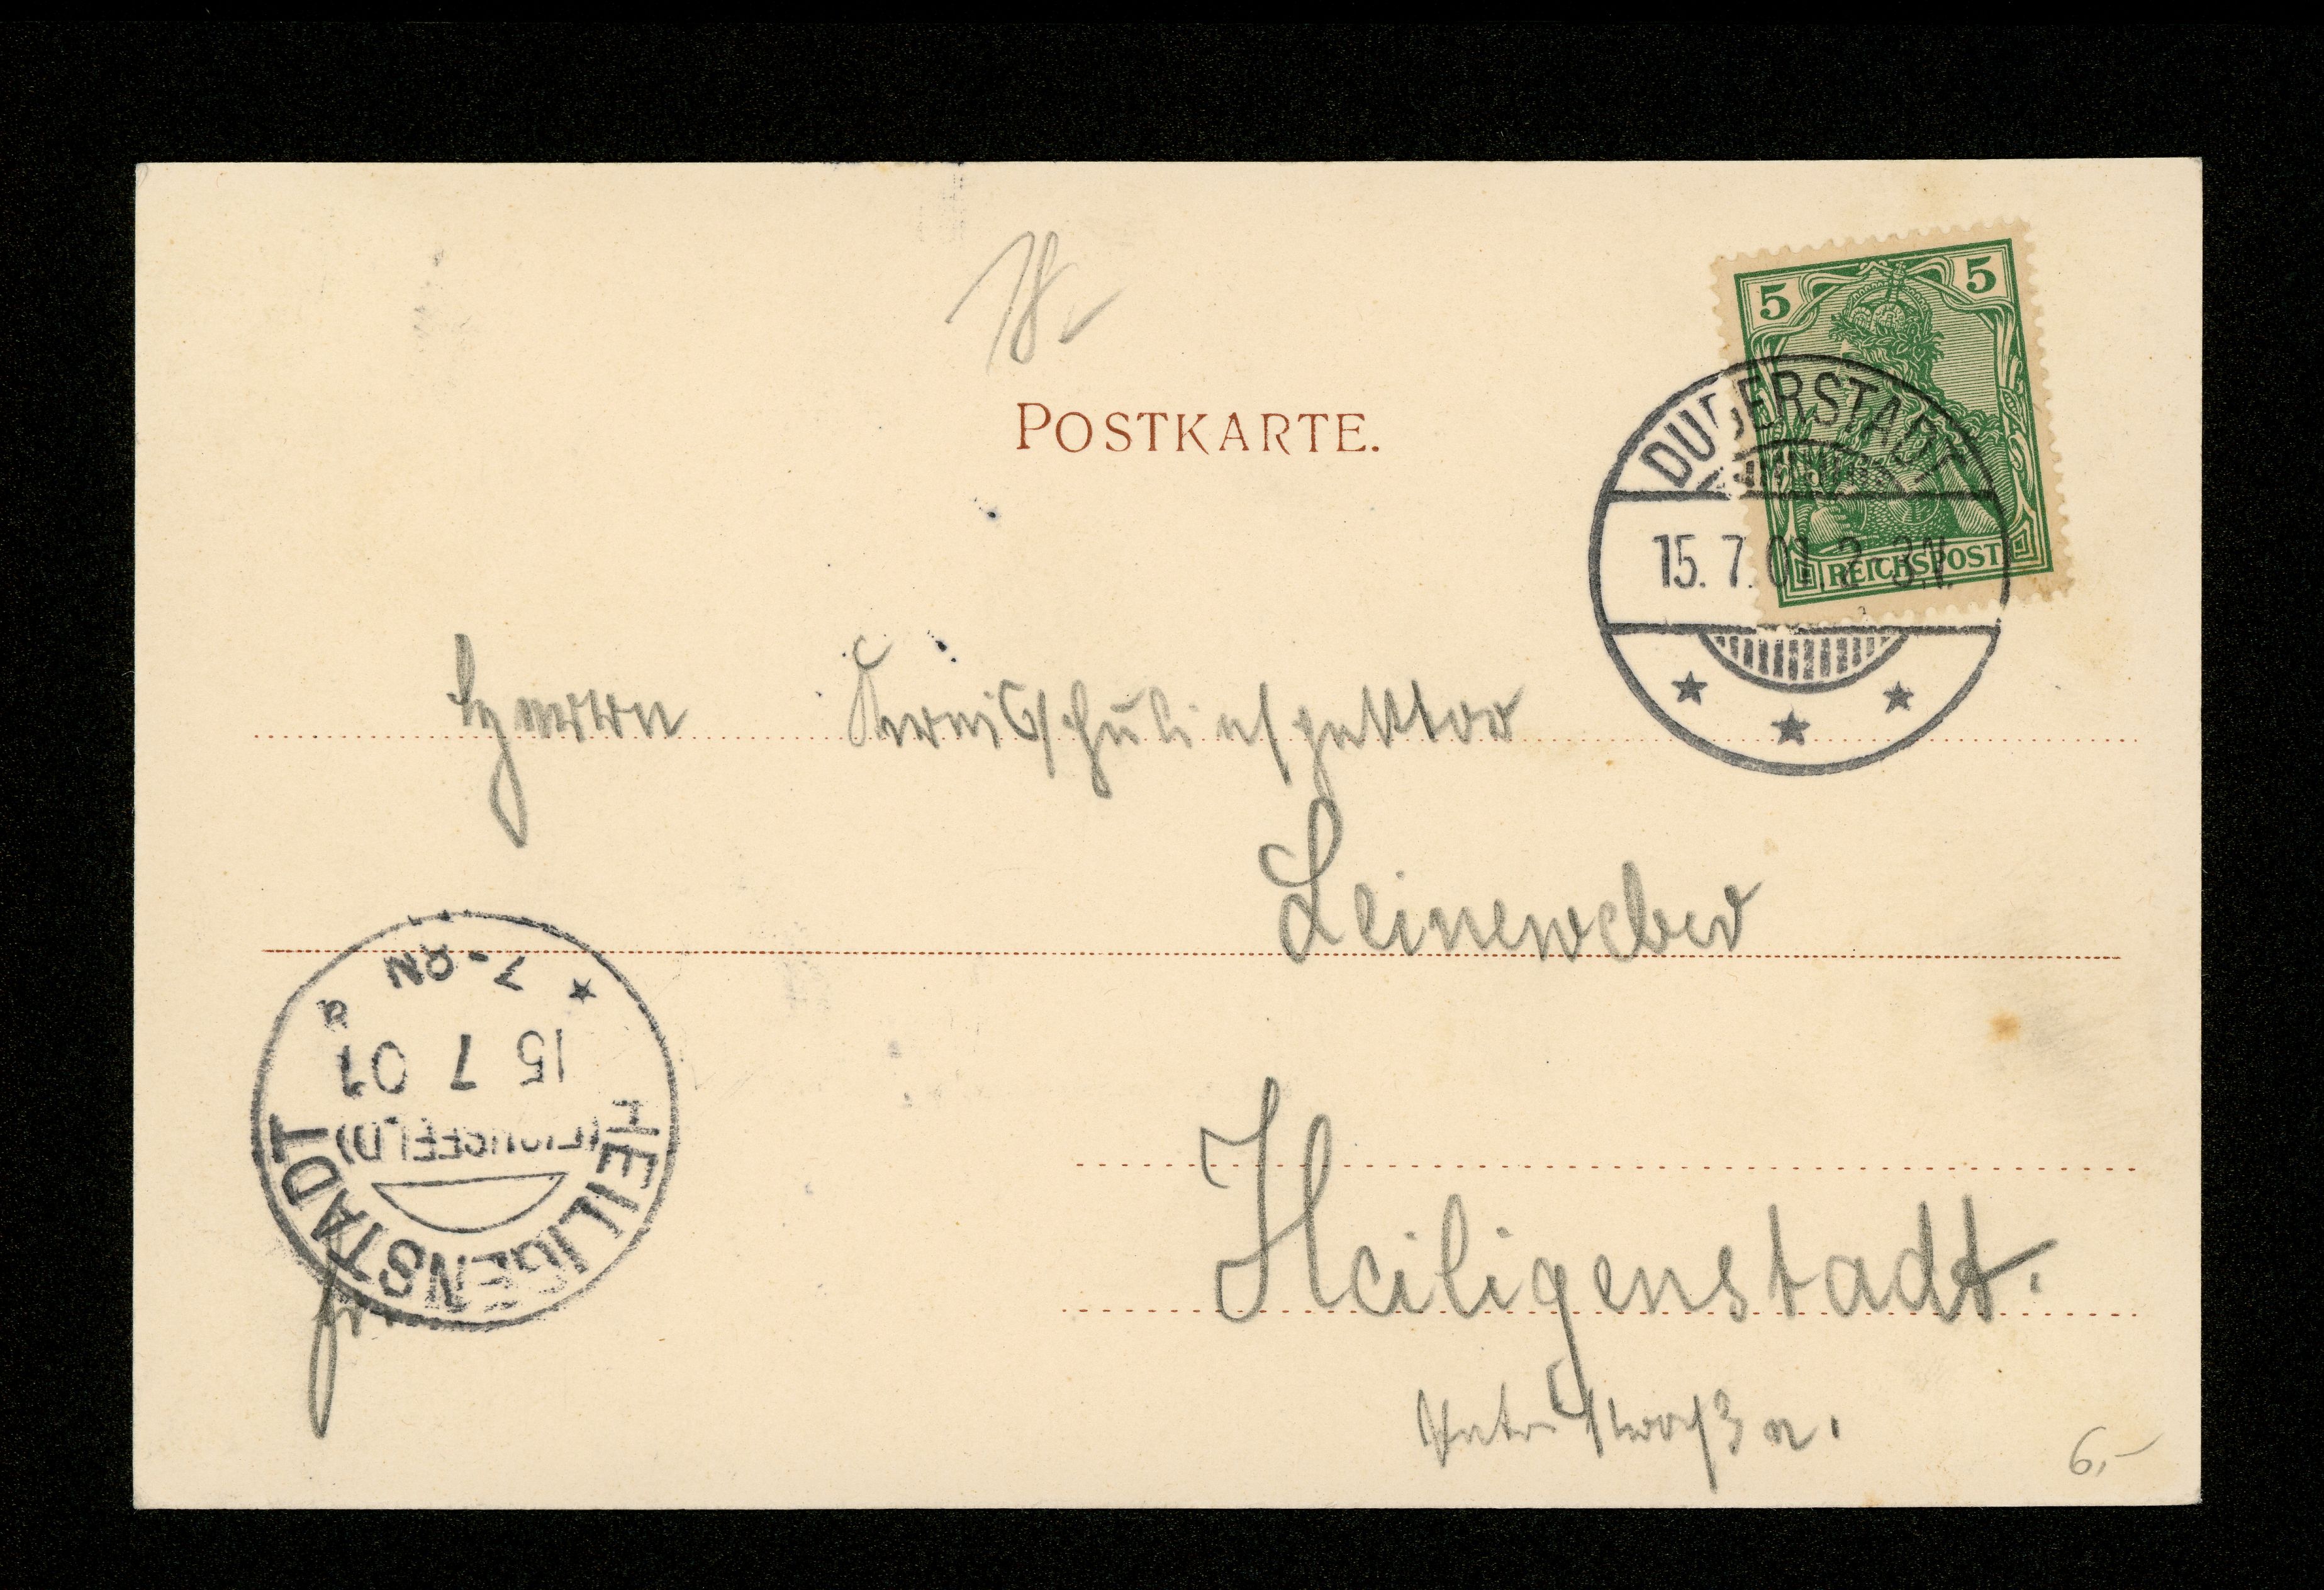 18,-
5 5
REICHSPOST
DUDERSTADT
15. 7. 01. 2-3.N.
POSTKARTE.
Herrn Kreisschulinspektor
Leineweber
Heiligenstadt.
HEILIGENSTADT
(EICHSFELD)
15 7 01
a
7-8N
6,-